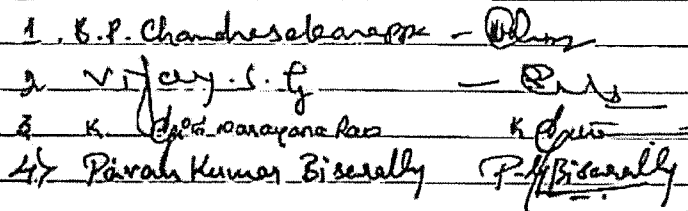 1. B.P. Chandresekareppa -
2. Vijay. S. G -
3 K. Narayana Rao K
4> Pavan Kumar Biserally P. Biserally